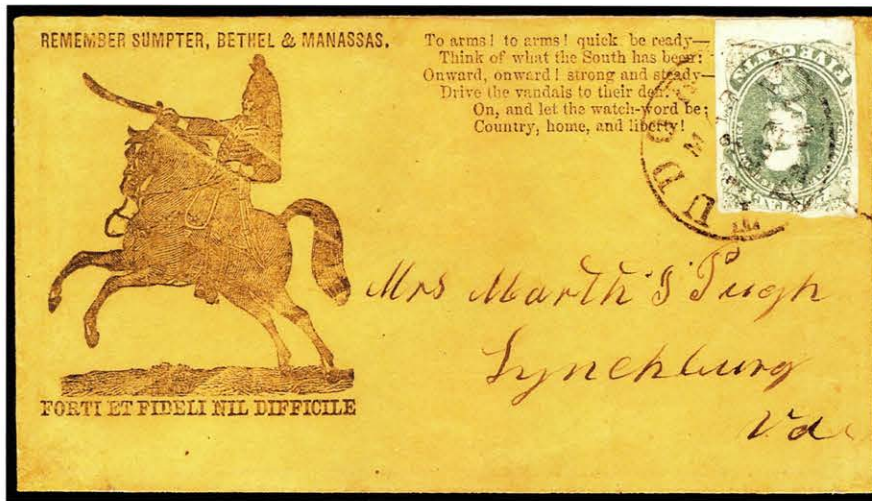 REMEMBER SUMPTER, BETHEL & MANASSAS.
To arms! to arms! quick be ready—
Think of what the South has been;
Onward, onward! strong and steady—
Drive the vandals to their den.
On, and let the watch-word be;
Country, home, and liberty!
FIVE CENTS
FORTI ET FIDELI NIL DIFFICILE
Mrs Marth S Pugh
Lynchburg
Va